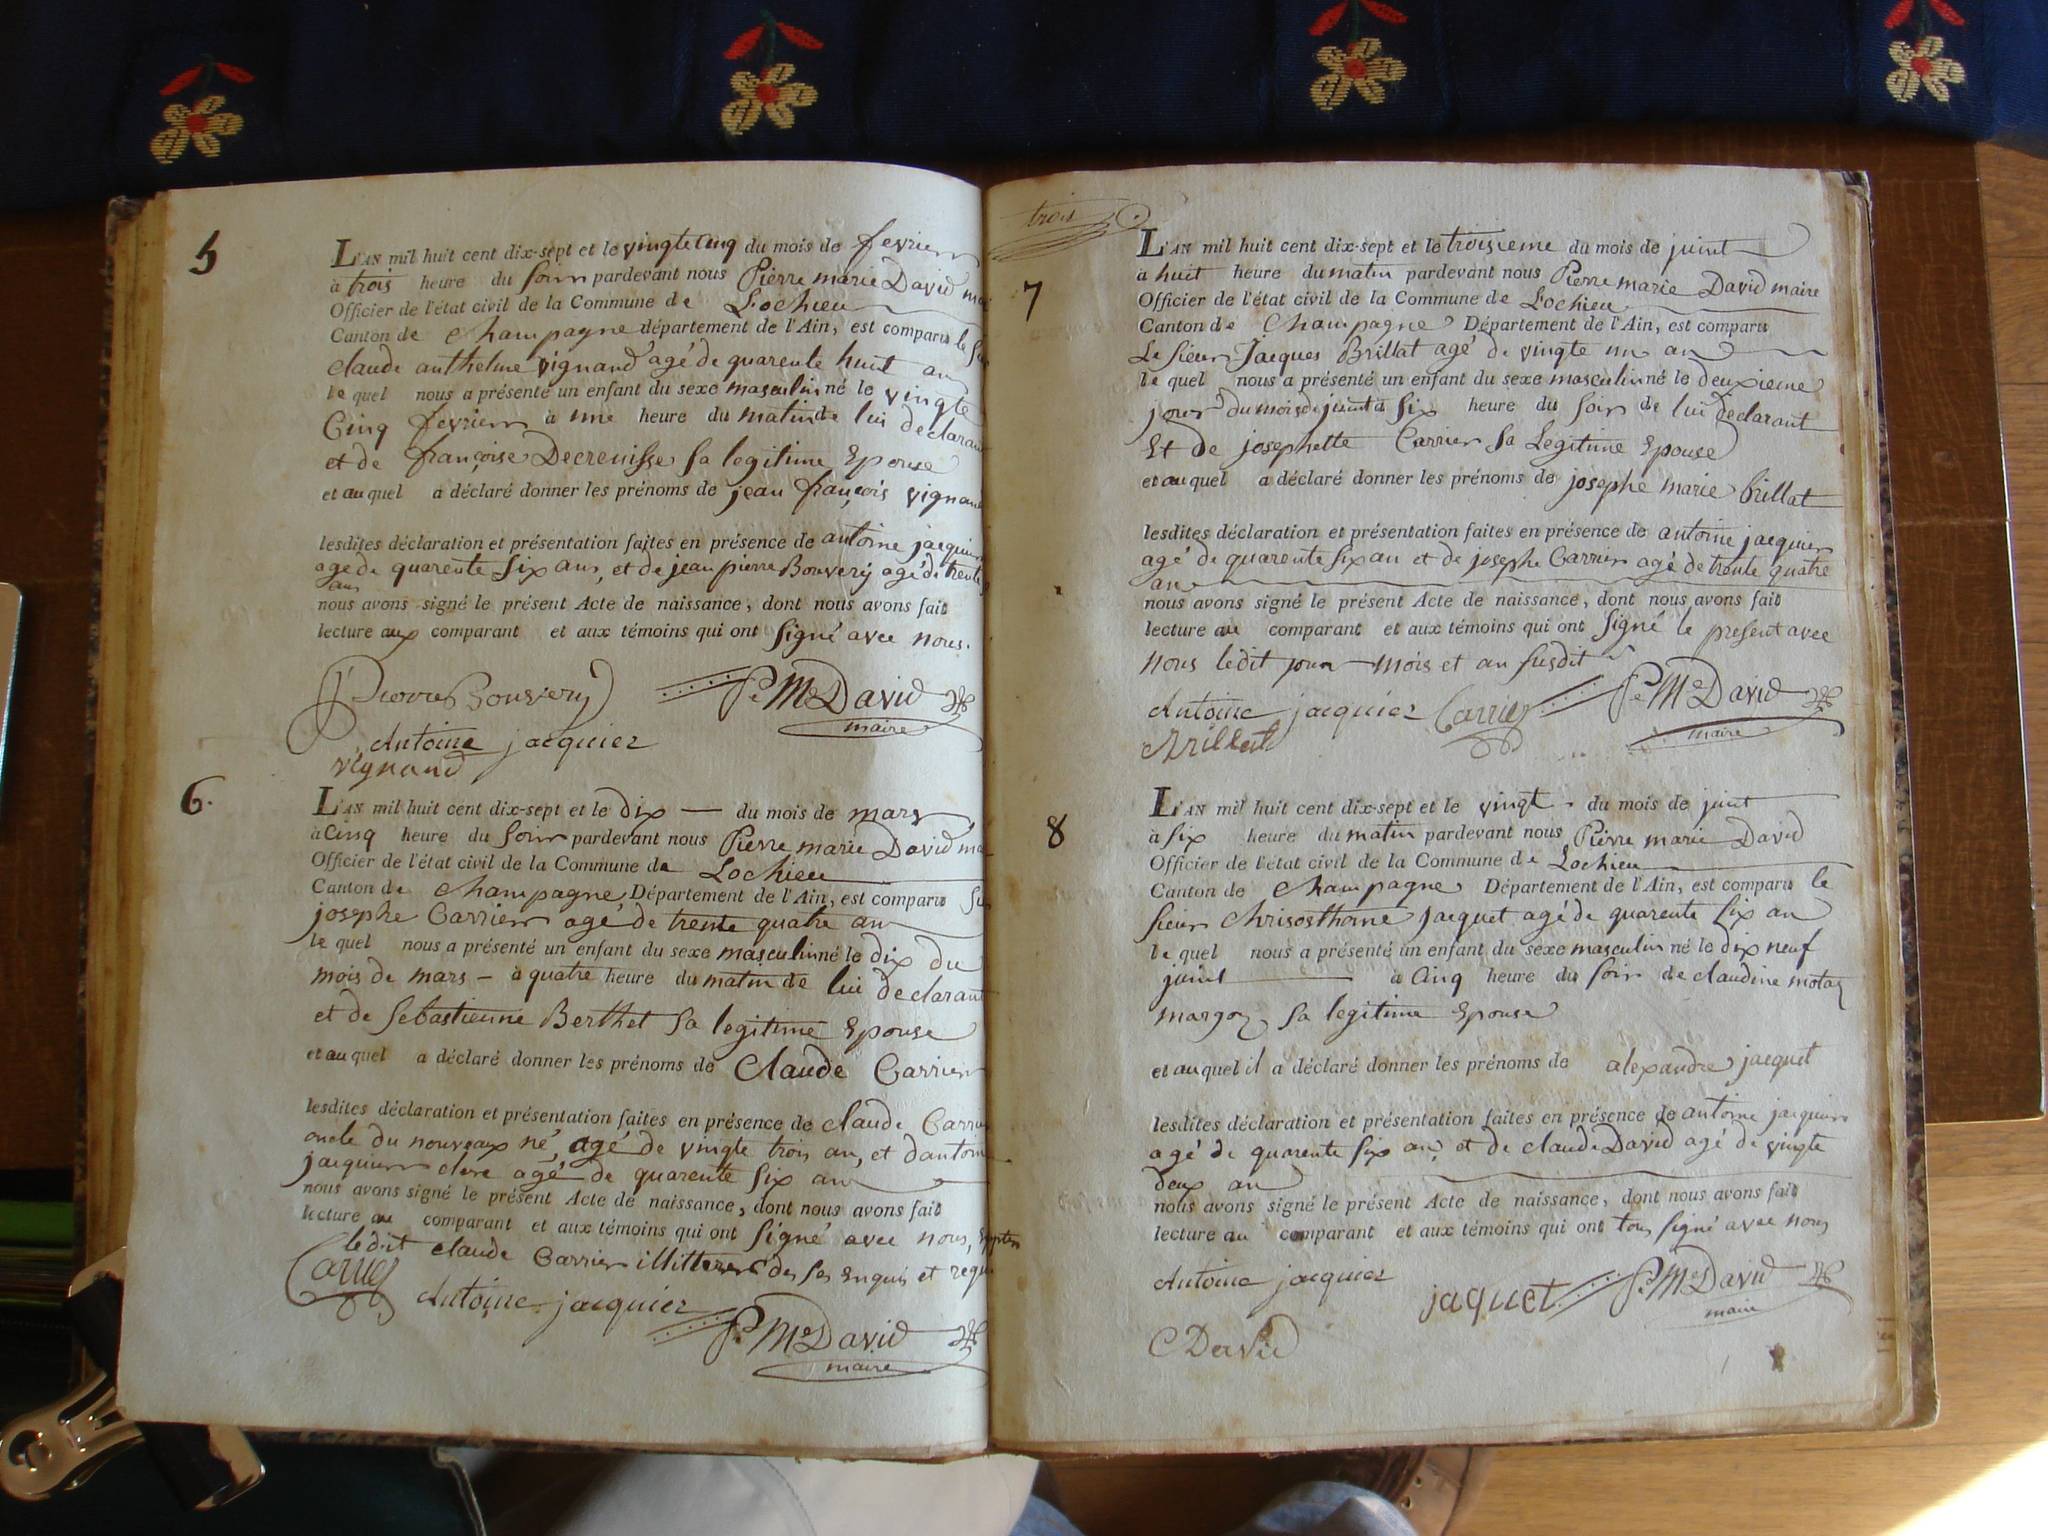 5
L'AN mil huit cent dix-sept et le vingte cinq du mois de fevrier
à trois heure du soir pardevant nous Pierre marie David
Officier de l'état civil de la Commune de Lochieu
Canton de Champagne département de l'Ain, est comparu le
claude anthelme vignand agé de quarente huit an
le quel nous a présenté un enfant du sexe masculin né le vingte
Cinq fevrier à une heure du matin de lui declarant
et de françoise Decrenisse sa legitime Epouse
et au quel a déclaré donner les prénoms de jean françois vignand
lesdites déclaration et présentation faites en présence de antoine jacquier
agé de quarente six ans, et de jean pierre Bouvery agé de trente
ans
nous avons signé le présent Acte de naissance, dont nous avons fait
lecture aux comparant et aux témoins qui ont signé avec nous.
Pierre Bouvery P.e M.e David
maire
Antoine jacquier
vignand
6.
L'AN mil huit cent dix-sept et le dix du mois de mars
à Cinq heure du soir pardevant nous Pierre marie David
Officier de l'état civil de la Commune de Lochieu
Canton de Champagne Département de l'Ain, est comparu
josephe Carrier agé de trente quatre an
le quel nous a présenté un enfant du sexe masculin né le dix du
mois de mars - à quatre heure du matin de lui declarant
et de Sebastienne Berthet sa legitime Epouse
et au quel a déclaré donner les prénoms de Claude Carrier
lesdites déclaration et présentation faites en présence de claude Carrier
oncle du nouveaux né, agé de vingte trois an, et d'antoine
jacquier clerc agé de quarente six an
nous avons signé le présent Acte de naissance, dont nous avons fait
lecture au comparant et aux témoins qui ont signé avec nous,
ledit claude Carrier de ses Enquis et requis
Carrier Antoine jacquier
P.e M.e David
maire
trois
7
L'AN mil huit cent dix-sept et le troisieme du mois de juint
à huit heure du matin pardevant nous Pierre marie David maire
Officier de l'état civil de la Commune de Lochieu
Canton de Champagne Département de l'Ain, est comparu
Le sieur Jacques Brillat agé de vingte un an
le quel nous a présenté un enfant du sexe masculin né le deuxieme
jour du mois de juint à six heure du soir de lui declarant
Et de josephette Carrier sa Legitime Epouse
et au quel a déclaré donner les prénoms de josephe marie brillat
lesdites déclaration et présentation faites en présence de antoine jacquier
agé de quarente six an et de josephe Carrier agé de trente quatre
an
nous avons signé le présent Acte de naissance, dont nous avons fait
lecture au comparant et aux témoins qui ont signé le present avec
nous ledit jour mois et an susdit
Antoine jacquier Carrier P.e M.e David
Brillat maire
8
L'AN mil huit cent dix-sept et le vingt du mois de juint
à six heure du matin pardevant nous Pierre marie David
Officier de l'état civil de la Commune de Lochieu
Canton de Champagne Département de l'Ain, est comparu le
sieur Chrisosthome Jacquet agé de quarente six an
le quel nous a présenté un enfant du sexe masculin né le dix neuf
juint à Cinq heure du soir de claudine
sa legitime Epouse
et au quel il a déclaré donner les prénoms de alexandre jacquet
lesdites déclaration et présentation faites en présence de antoine jacquier
agé de quarente six an, et de claude David agé de vingte
deux an
nous avons signé le présent Acte de naissance, dont nous avons fait
lecture au comparant et aux témoins qui ont tous signé avec nous
Antoine jacquier jaquet P.e M.e David
maire
C David